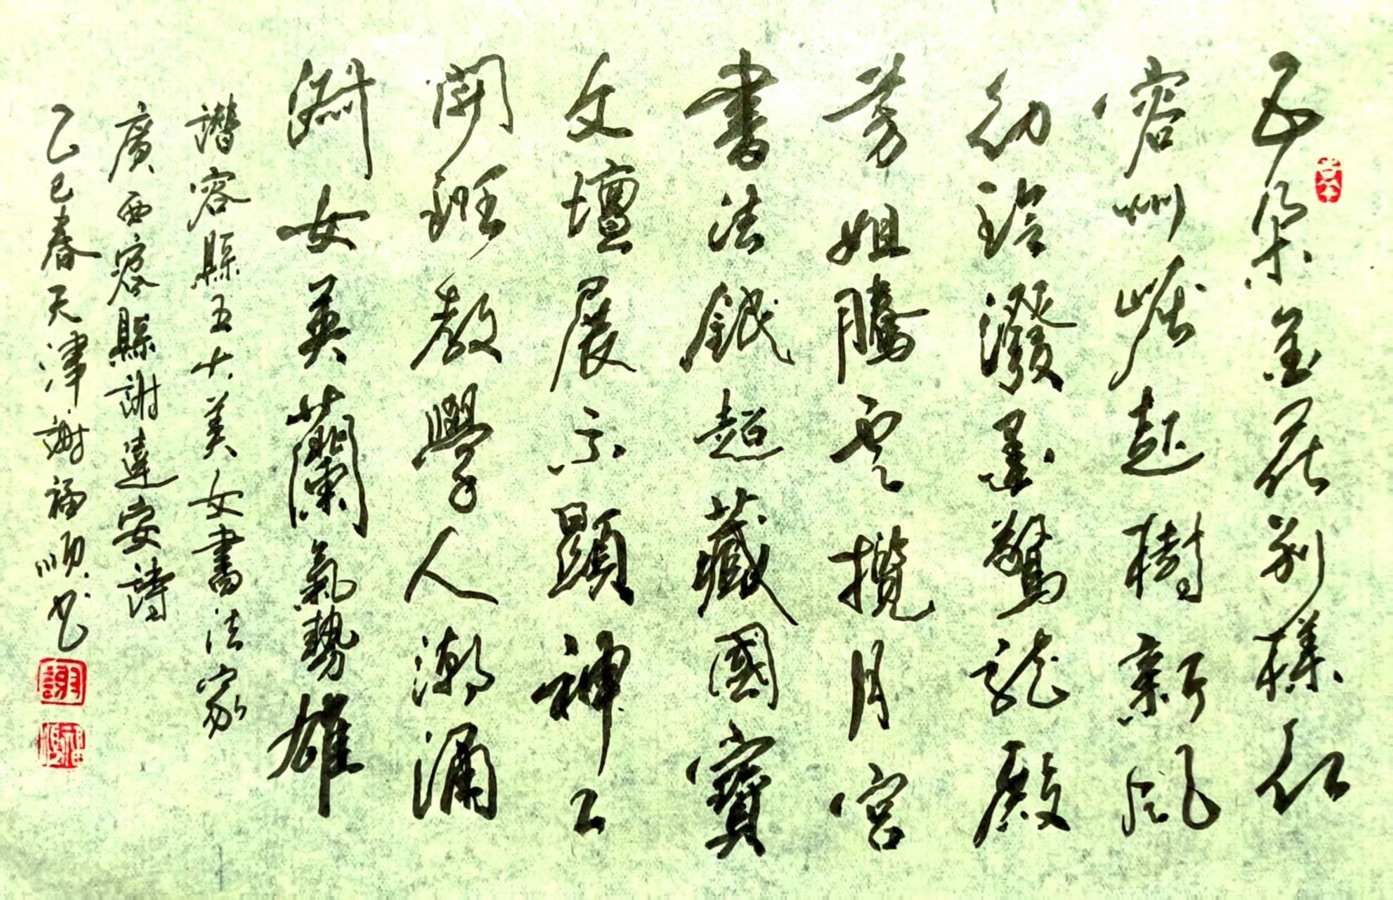 五朵金花别樣红
容州崛起樹新风
幼玲潑墨驚龙殿
芳姐騰云攬月宫
書法銀超藏國寶
文壇展示顯神工
開班教學人潮涌
淵女英蘭氣勢雄
讚容縣五大美女書法家
廣西容縣謝達安詩
乙巳春天津謝福順书